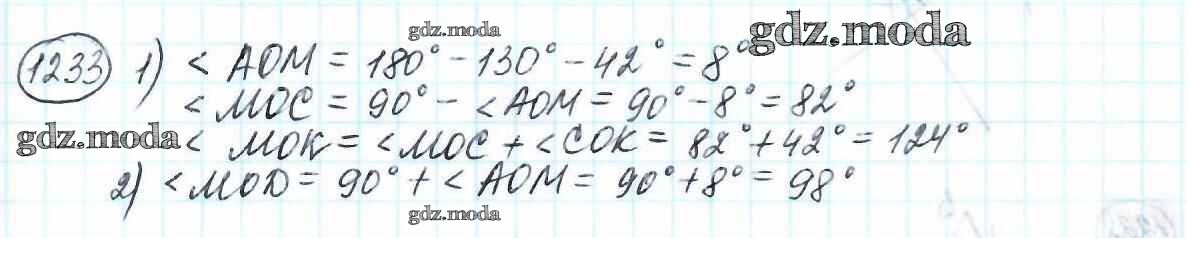 gdz.moda
gdz.moda
1233 1) < AOM = 180° - 130° - 42° = 8°
< MOC = 90° - < AOM = 90° - 8° = 82°
gdz.moda < MOK = < MOC + < COK = 82° + 42° = 124°
2) < MOD = 90° + < AOM = 90° + 8° = 98°
gdz.moda